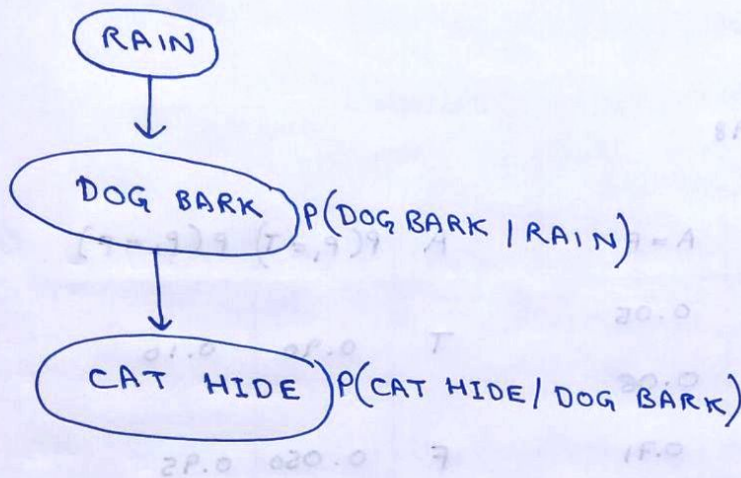 RAIN
DOG BARK P(DOG BARK / RAIN)
CAT HIDE P(CAT HIDE / DOG BARK)